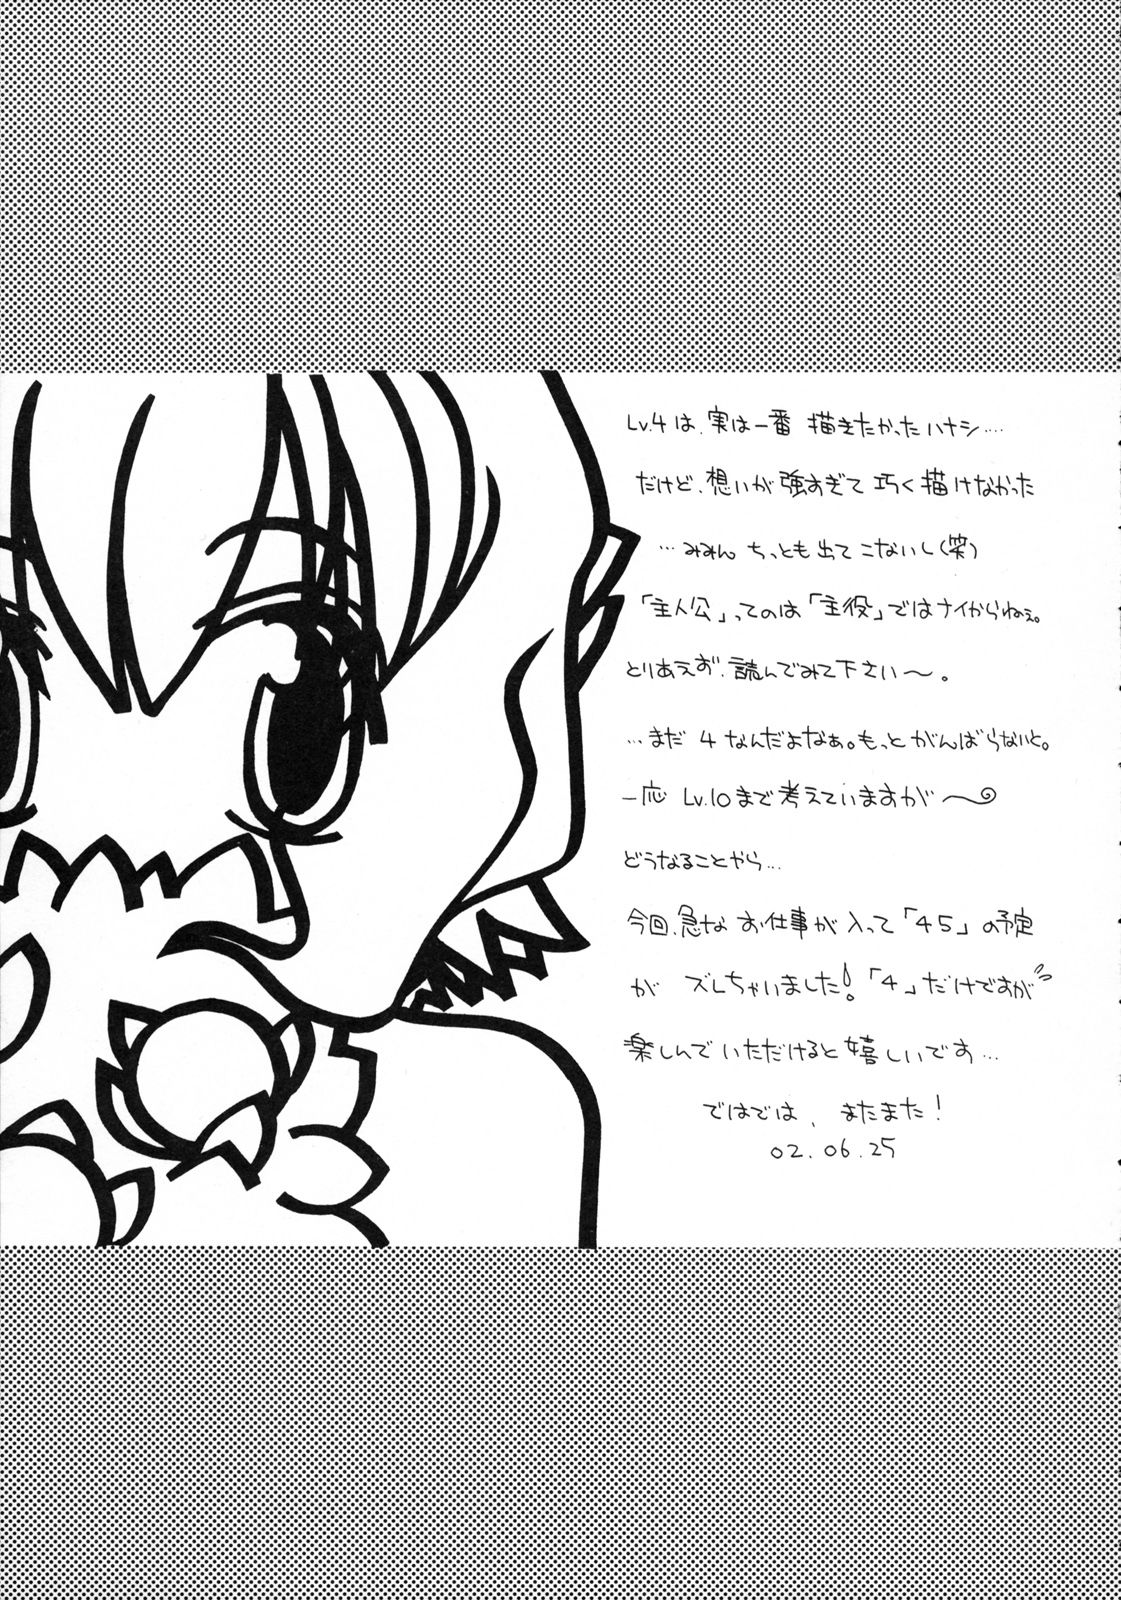 Lv.4は、実は一番 描きたかったハナシ…
だけど、想いが強すぎて 巧く描けなかった
…みみん ちっとも出て こないし(笑)
「主人公」ってのは「主役」ではナイからねぇ。
とりあえず、読んでみて下さい〜。
…まだ 4 なんだよなぁ。もっと がんばらないと。
一応 Lv.10まで考えていますが〜
どうなることやら…
今回、急な お仕事が入って「45」の予定
が ズレちゃいました!「4」だけですが
楽しんでいただけると嬉しいです…
ではでは、またまた!
02.06.25